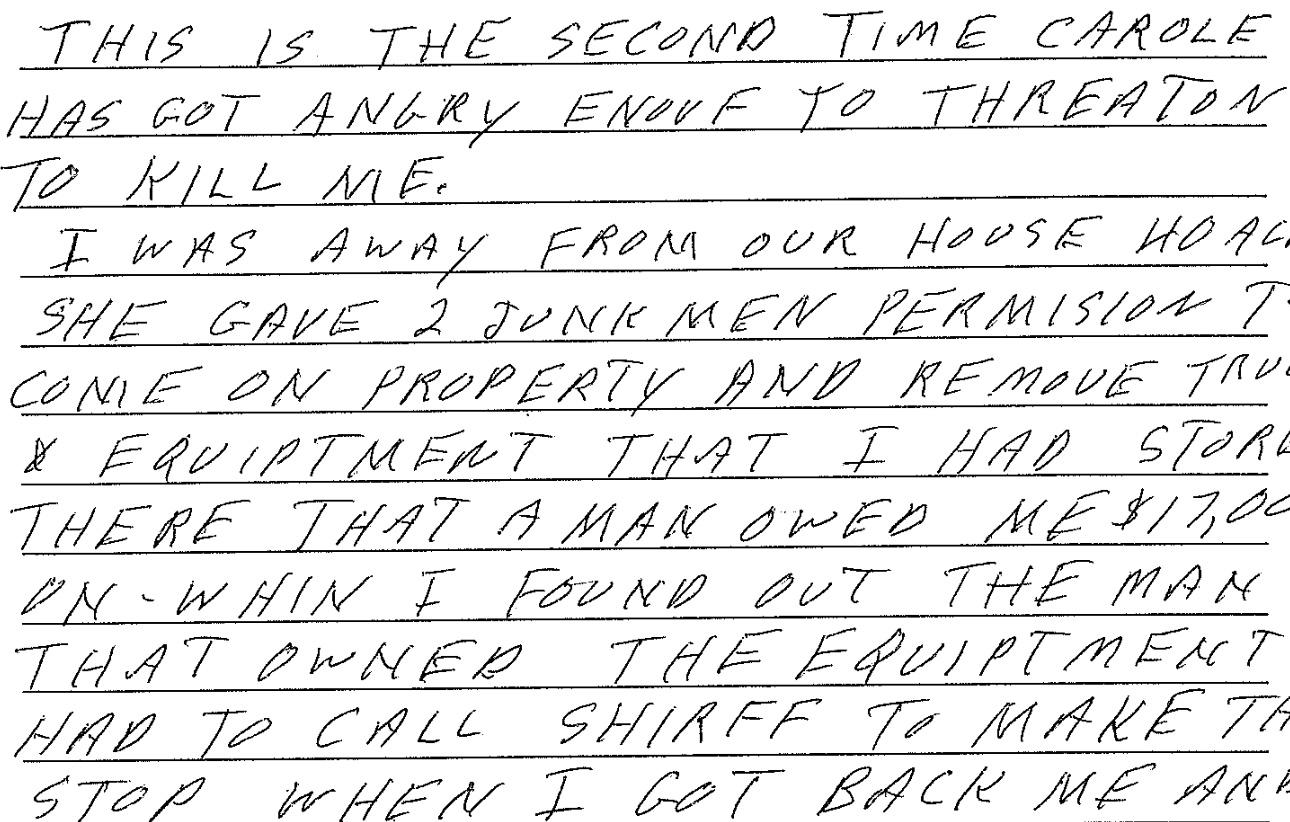 THIS IS THE SECOND TIME CAROLE
HAS GOT ANGRY ENOUF TO THREATON
TO KILL ME.
I WAS AWAY FROM OUR HOUSE
SHE GAVE 2 JUNK MEN PERMISION
COME ON PROPERTY AND REMOVE
& EQUIPTMENT THAT I HAD
THERE THAT A MAN OWED ME
ON - WHIN I FOUND OUT THE MAN
THAT OWNED THE EQUIPTMENT
HAD TO CALL SHIRFF TO MAKE
STOP WHEN I GOT BACK ME